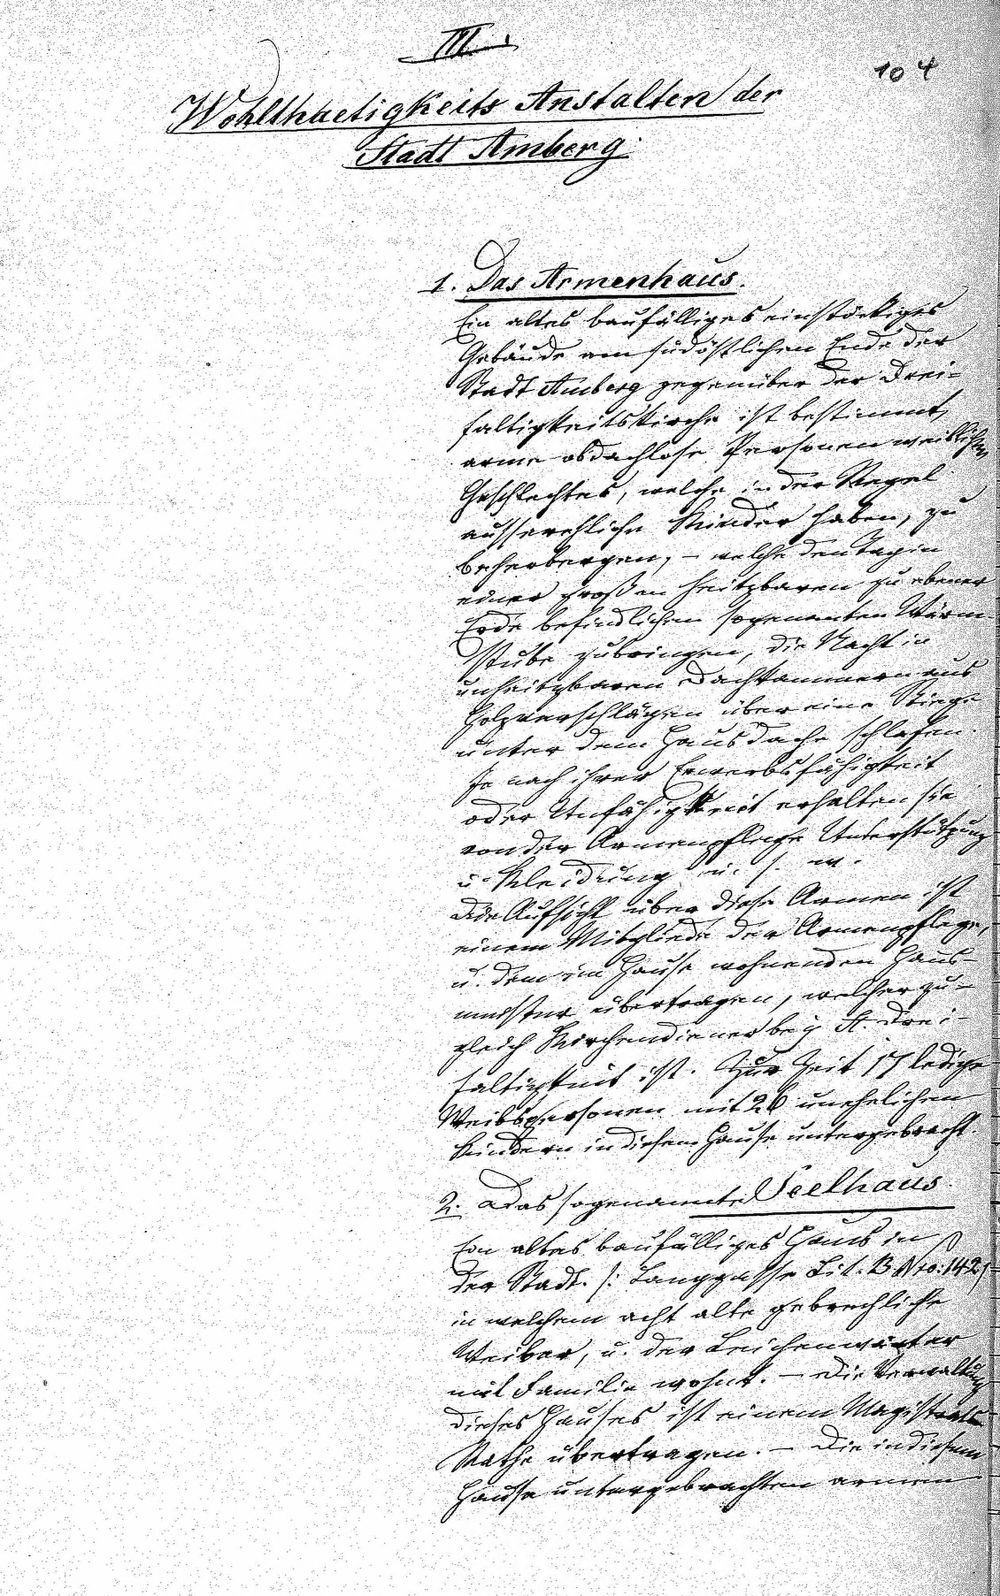 III.
104
Wohlthaetigkeits Anstalten der
Stadt Amberg.
1. Das Armenhaus.
Ein altes baufälliges einstöckiges
Gebäude am südöstlichen Ende der
Stadt Amberg gegenüber der Drei-
faltigkeitskirche ist bestimmt,
arme obdachlose Personen weiblichen
Geschlechtes, welche in der Regel
aussereheliche Kinder haben, zu
beherbergen, – welche den Tag in
einer großen heitzbaren zu ebener
Erde befindlichen sogenannten Wärm-
stube zubringen, die Nacht in
unheitzbaren Dachkammern aus
Holzverschlägen über eine Stiege
unter dem Hausdache schlafen.
Je nach ihrer Erwerbsfähigkeit
oder Unfähigkeit erhalten sie
von der Armenpflege Unterstützung
u. Kleidung u. s. w.
Die Aufsicht über diese Armen ist
einem Mitgliede der Armenpflege,
u. dem im Hause wohnenden Haus-
meister übertragen, welcher zu-
gleich Kirchendiener bey St. Drei-
faltigkeit ist. Zur Zeit 17 ledige
Weibspersonen mit 26 unehelichen
Kindern in diesem Hause untergebracht.
2. Das sogenannte Seelhaus.
Ein altes baufälliges Haus in
der Stadt /: Langgasse Lit. B Nro. 142
in welchem acht alte gebrechliche
Weiber, u. der Leichenwärter
mit Familie wohnt. – Die Verwaltung
dieses Hauses ist einem Magistrats
Rathe übertragen. – Die in diesem
Hause untergebrachten armen